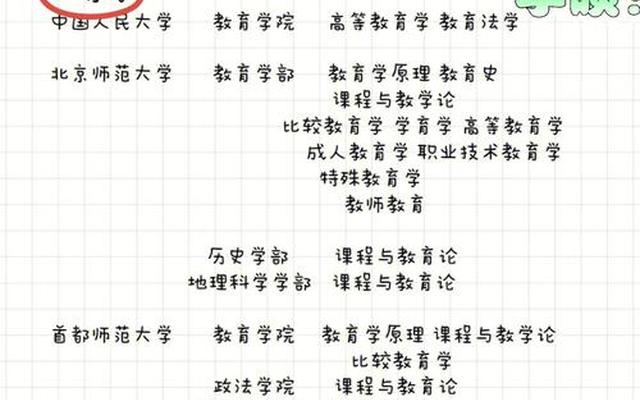 中国人民大学 教育学院 高等教育学 教育法学
北京师范大学 教育学部 教育学原理 教育史
课程与教学论
比较教育学 学育学 高等教育学
成人教育学 职业技术教育学
特殊教育学
教师教育
历史学部 课程与教育论
地理科学学部 课程与教育论
首都师范大学 教育学院 教育学原理 课程与教学论
比较教育学
政法学院 课程与教育论